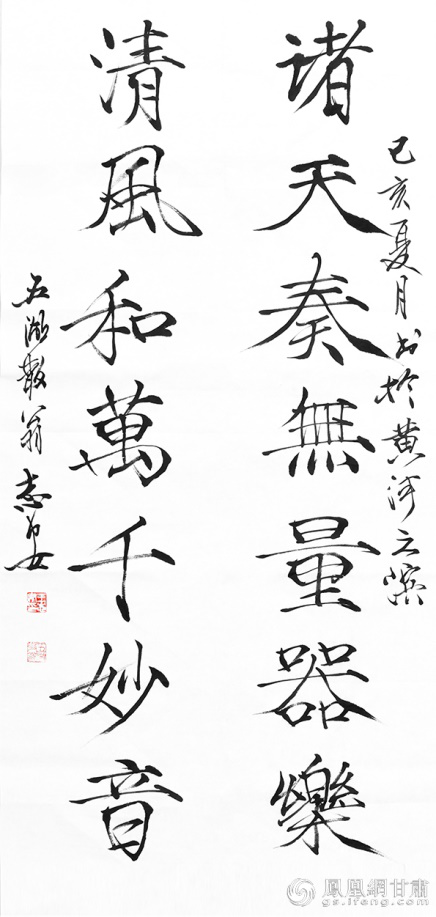 己亥夏月书於黄河之滨
诸天奏無量器樂
清風和萬千妙音
五湖散翁
鳳凰網甘肅
gs.ifeng.com